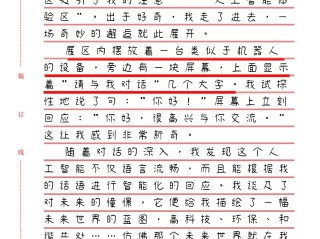 区吸引了我的注意——"人工智能体
验区"。出于好奇，我走了进去，一
场奇妙的邂逅就此展开。
展区内摆放着一台类似于机器人
的设备，旁边有一块屏幕，上面显示
着"请与我对话"几个大字。我试探
性地说了句："你好！"屏幕上立刻
回应："你好，很高兴与你交流。"
这让我感到非常新奇。
随着对话的深入，我发现这个人
工智能不仅语言流畅，而且能根据我
的话语进行智能化的回应。我谈及了
对未来的憧憬，它便给我描绘了一幅
未来世界的蓝图，高科技、环保、和
谐共处……仿佛那个未来世界就在我
装
订
线